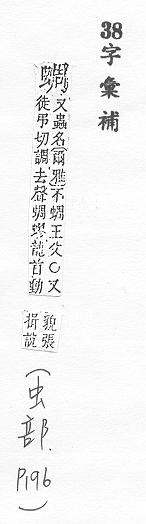 38字彙補
蜩
又蟲名爾雅不蜩王父〇又
徒弔切調去聲蜩蟉龍首動
貌張
揖說
(虫部.
P196)